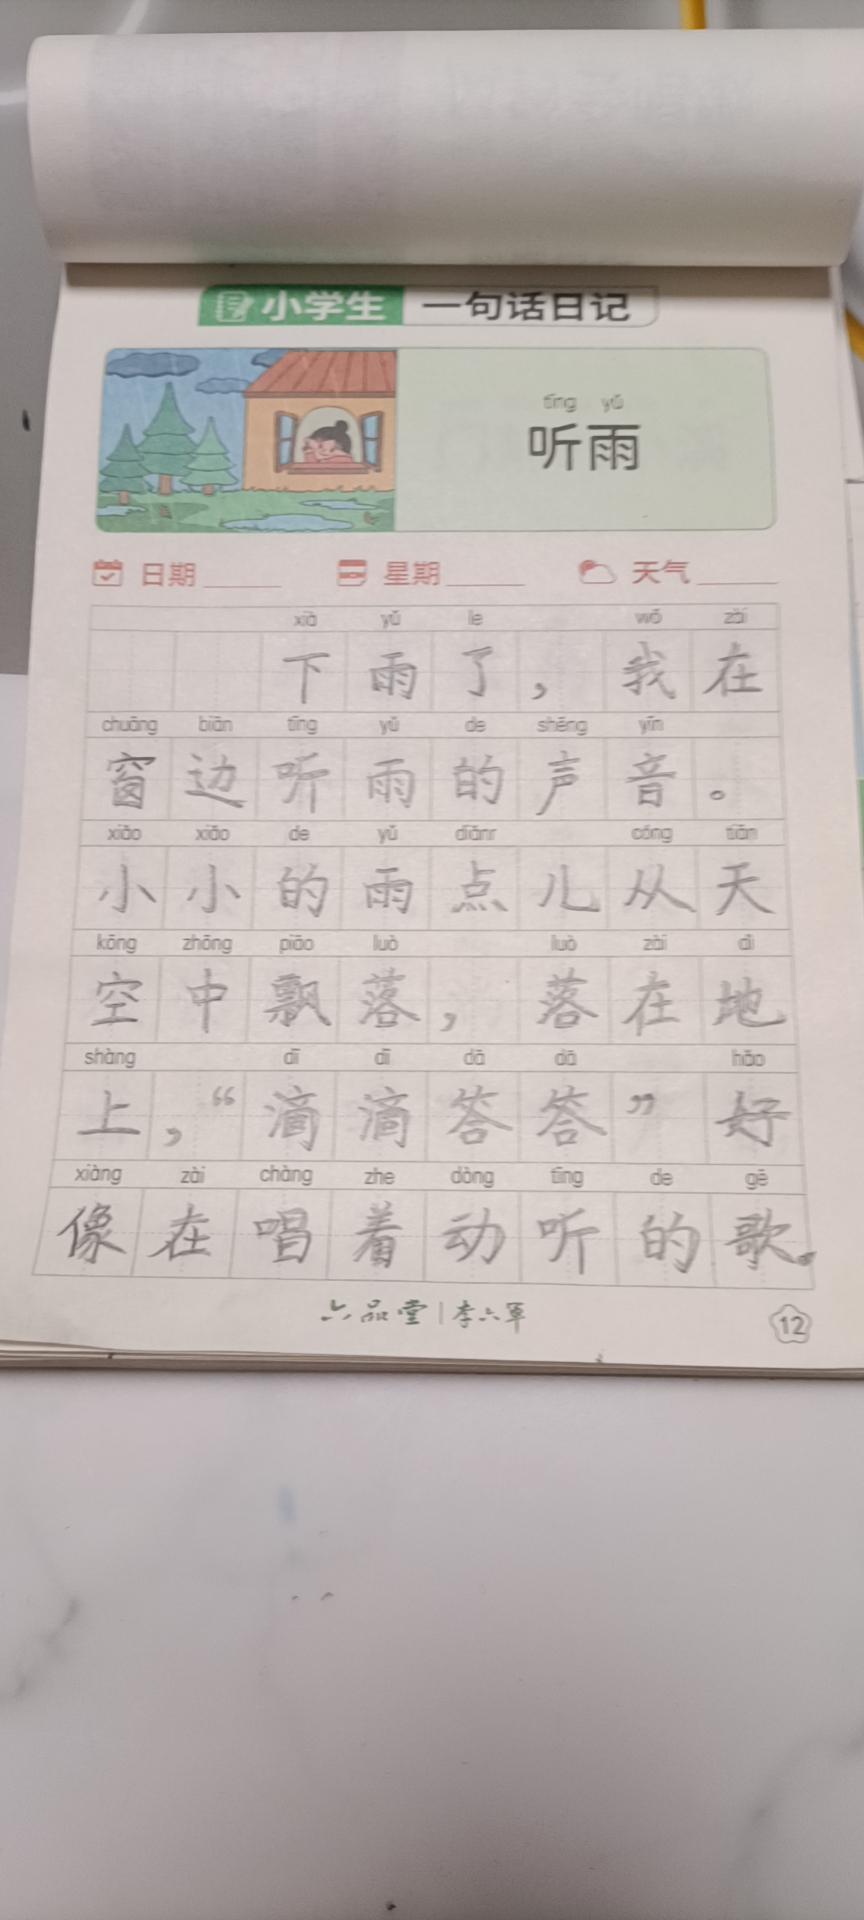 小学生 一句话日记
tīng yǔ
听雨
日期 星期 天气
xià yǔ le wǒ zài
下雨了，我在
chuāng biān tīng yǔ de shēng yīn
窗边听雨的声音。
xiǎo xiǎo de yǔ diǎnr cóng tiān
小小的雨点儿从天
kōng zhōng piāo luò luò zài dì
空中飘落，落在地
shàng dī dī dā dā hǎo
上，“滴滴答答”好
xiàng zài chàng zhe dòng tīng de gē
像在唱着动听的歌。
六品堂|李六军
12